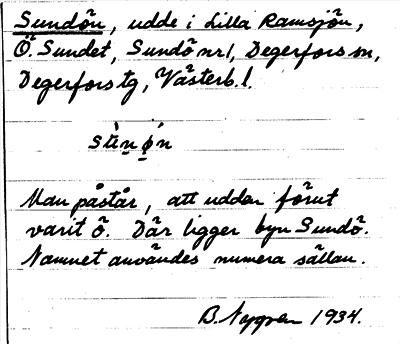 Sundön, udde i Lilla Ramsjön,
Ö. Sundet, Sundö nr1, Degerfors sn,
Degerfors tg, Västerb. l.
Man påstår, att udden förut
varit ö. Där ligger byn Sundö.
Namnet användes numera sällan.
B. Nygren 1934.